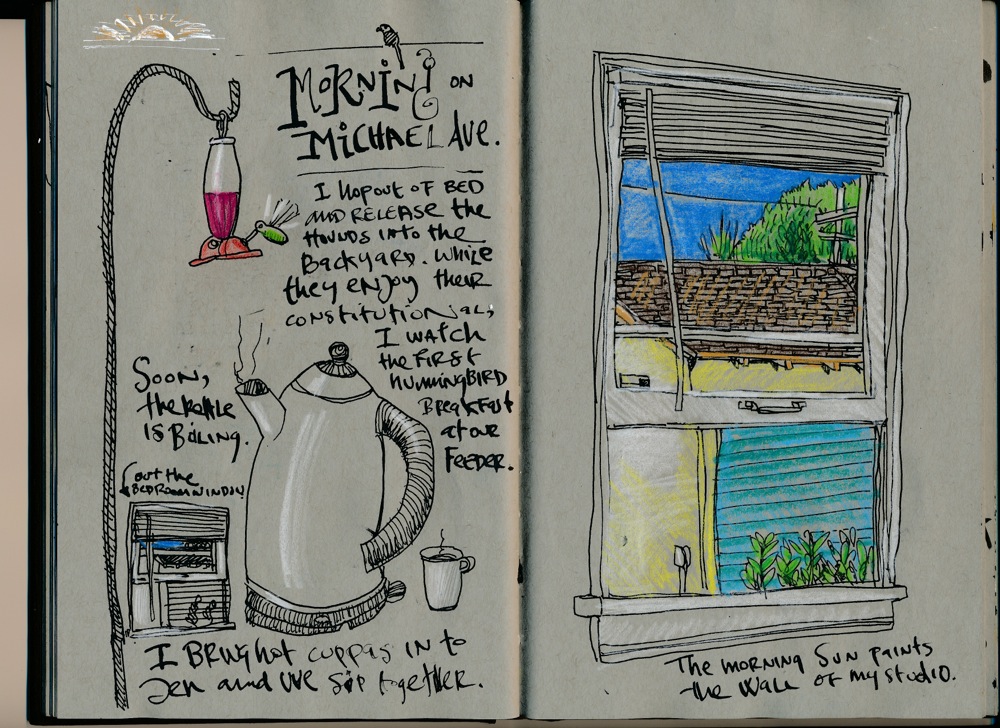 MORNING ON
MICHAEL AVE.
I HOP OUT OF BED
AND RELEASE the
HOUNDS INTO the
BACKYARD. WHILE
they ENJOY THEIR
CONSTITUTIONALS,
I WATCH
the FIRST
HUMMINGBIRD
BREAKFAST
at our
FEEDER.
SOON,
the kettle
IS BOILING.
out the
BEDROOM WINDOW
I BRING hot cuppas IN to
Jen and we sip together.
The MORNING SUN PAINTS
the WALL OF MY STUDIO.